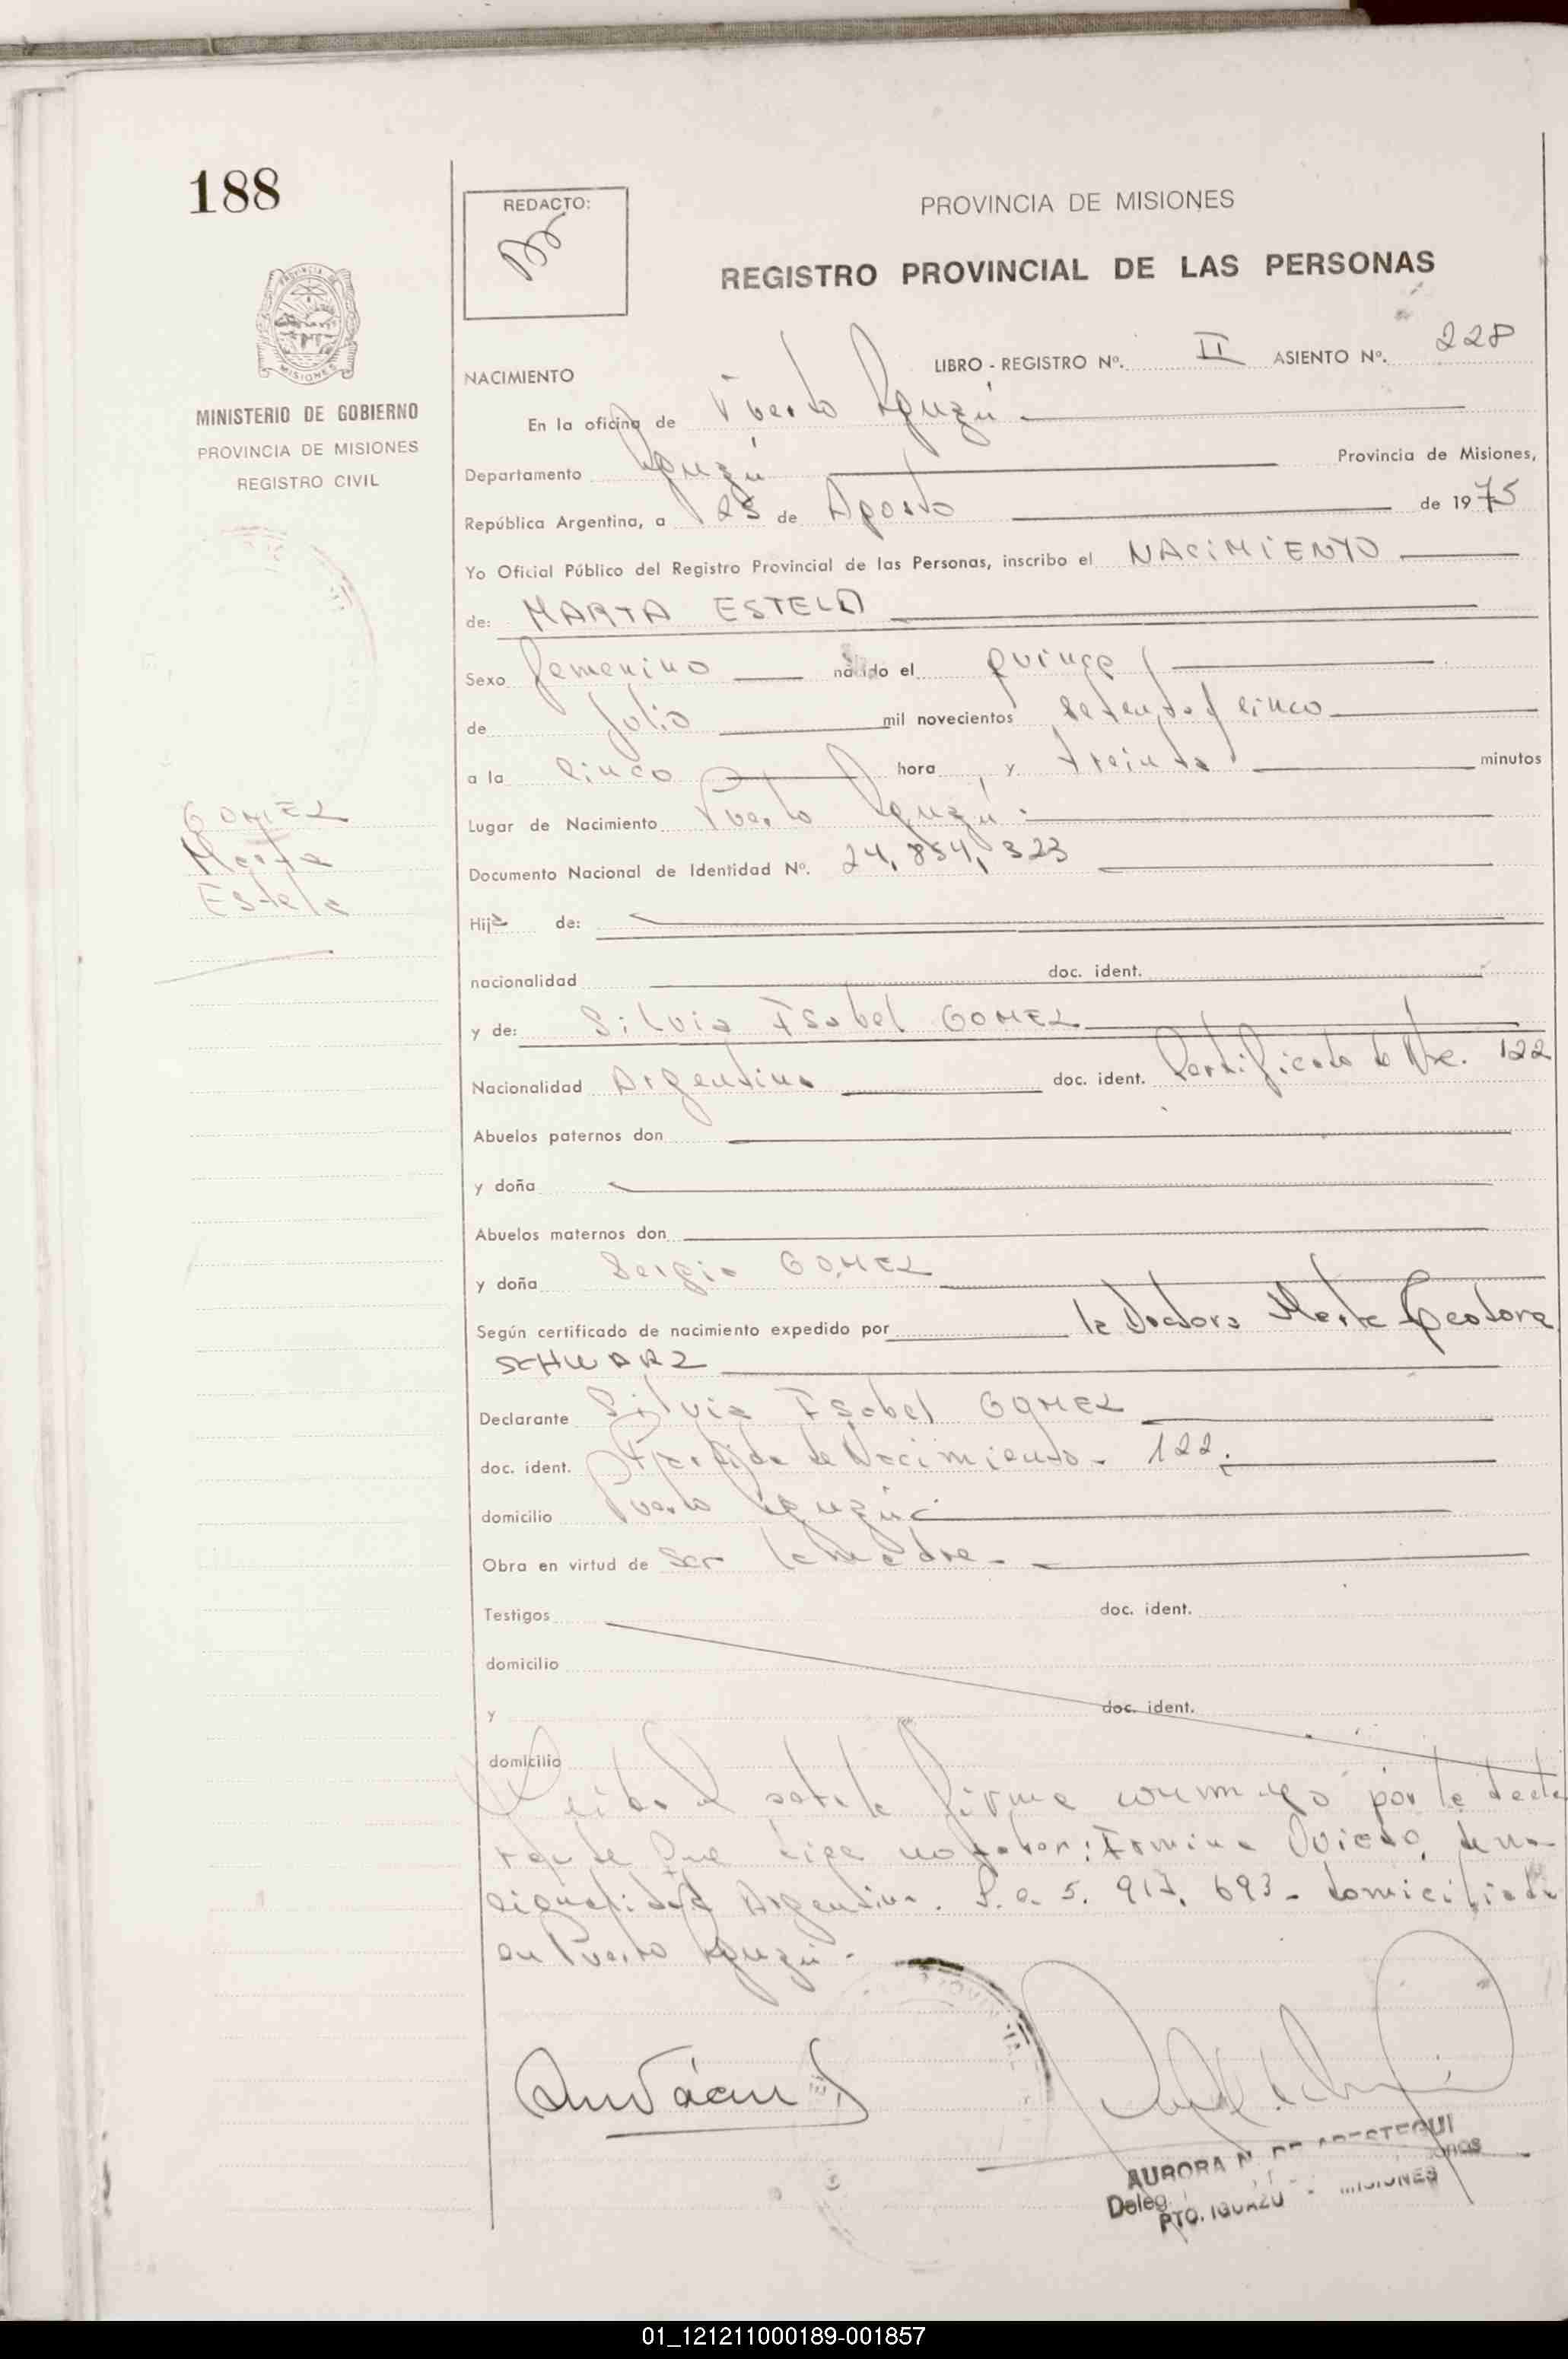 188
REDACTO:
PROVINCIA DE MISIONES
REGISTRO PROVINCIAL DE LAS PERSONAS
MISIONES
MINISTERIO DE GOBIERNO
PROVINCIA DE MISIONES
REGISTRO CIVIL
LIBRO - REGISTRO Nº. II ASIENTO Nº. 228
NACIMIENTO
En la oficina de Puerto Iguazú
Departamento Iguazú Provincia de Misiones,
República Argentina, a 25 de Agosto de 1975
Yo Oficial Público del Registro Provincial de las Personas, inscribo el NACIMIENTO
de: MARTA ESTELA
Sexo femenino nacido el quince
de Julio mil novecientos setenta y cinco
a la cinco hora y treinta minutos
Lugar de Nacimiento Puerto Iguazú
GOMEZ
Marta
Estela
Documento Nacional de Identidad Nº. 24,854,323
Hija de:
nacionalidad doc. ident.
y de: Silvia Isabel GOMEZ
Nacionalidad Argentina doc. ident. 122
Abuelos paternos don
y doña
Abuelos maternos don
y doña Sergia GOMEZ
Según certificado de nacimiento expedido por la Doctora Marta Teodora
SCHWARZ
Declarante Silvia Isabel GOMEZ
doc. ident. Partida de Nacimiento - 122.
domicilio Puerto Iguazú
Obra en virtud de ser la madre -
Testigos doc. ident.
domicilio
y doc. ident.
domicilio
Leida el acta la firma conmigo por la decla
rante que dice no saber: Irmina Oviedo, de na-
cionalidad Argentina. 693 - domiciliada
en Puerto Iguazú -
AURORA
Deleg
PTO. IGUAZU MISIONES
01_121211000189-001857